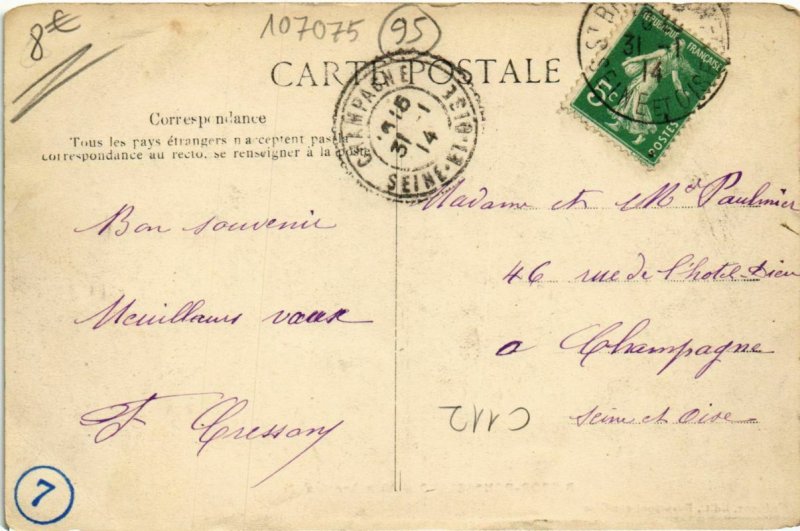 8€
107075
95
CARTE POSTALE
Correspondance
Tous les pays étrangers n'acceptent pas la
correspondance au recto, se renseigner à la poste
CHAMPAGNE
31 -1
14
SEINE-ET-OISE
31 -1
14
SEINE ET OISE
REPUBLIQUE FRANÇAISE
5c
POSTES
Madame et Mr Paulmier
46 rue de l'hotel-Dieu
a Champagne
Seine et Oise
Bon souvenir
Meuilleurs vœux
F Cresson
C112
7